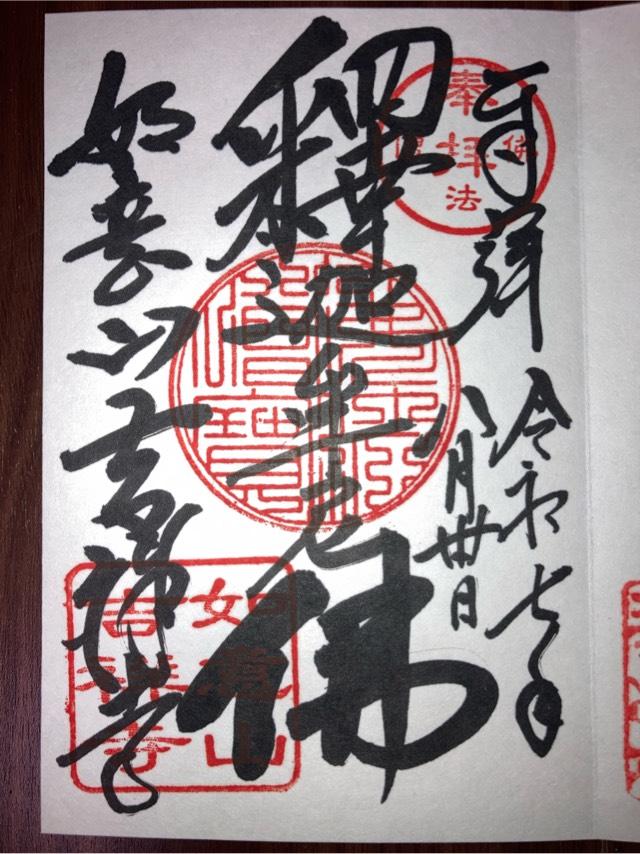 奉拝 令和七年
八月卅日
釋迦牟尼佛
如意山吉祥寺
奉拜
佛
法
如意山
吉祥寺